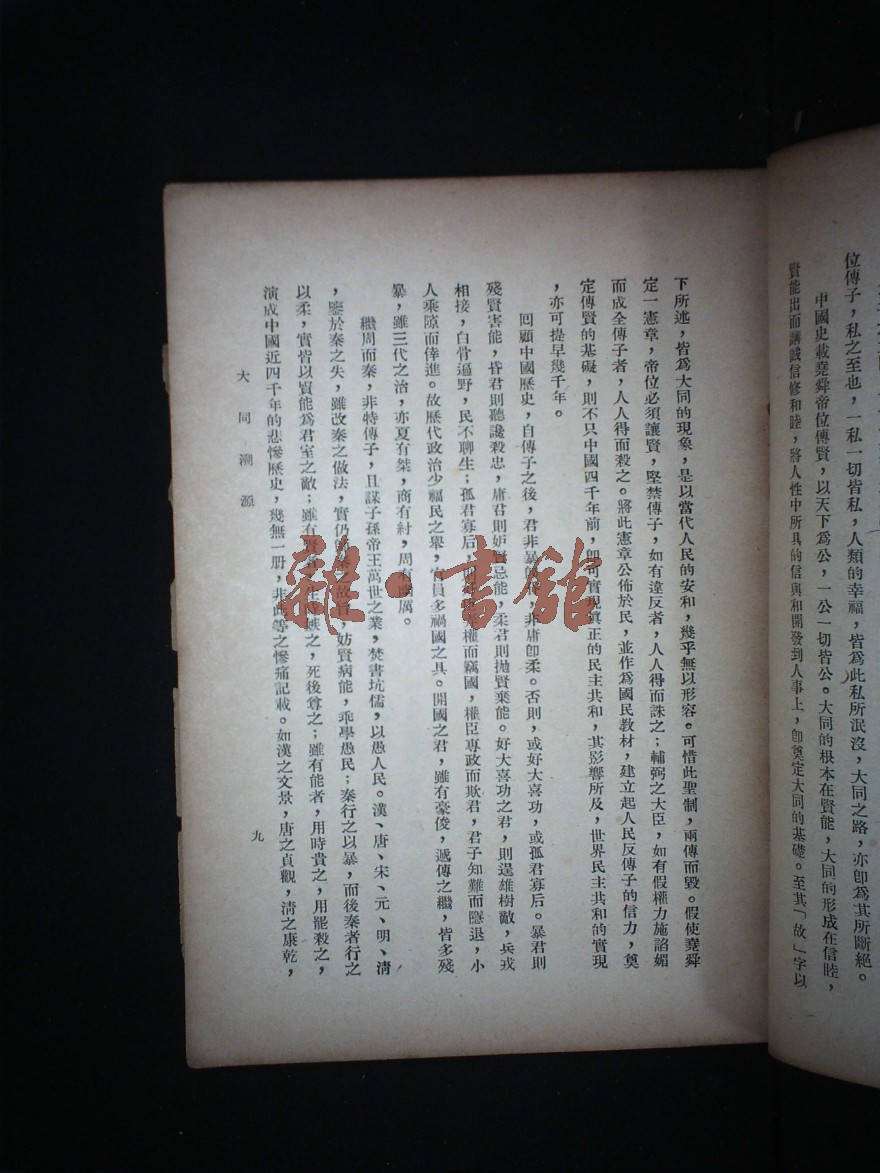 位傳子，私之至也，一私一切皆私，人類的幸福，皆爲此私所泯沒，大同之路，亦卽爲其所斷絕。
中國史載堯舜帝位傳賢，以天下爲公，一公一切皆公。大同的根本在賢能，大同的形成在信睦，
賢能出而講誠信修和睦，將人性中所具的信與和開發到人事上，卽奠定大同的基礎。至其「故」字以
下所述，皆爲大同的現象，是以當代人民的安和，幾乎無以形容。可惜此聖制，兩傳而毀。假使堯舜
定一憲章，帝位必須讓賢，堅禁傳子，如有違反者，人人得而誅之；輔弼之大臣，如有假權力施諂媚
而成全傳子者，人人得而殺之。將此憲章公佈於民，並作爲國民教材，建立起人民反傳子的信力，奠
定傳賢的基礎，則不只中國四千年前，卽可實現眞正的民主共和，其影響所及，世界民主共和的實現
，亦可提早幾千年。
回顧中國歷史，自傳子之後，君非暴卽，非庸卽柔。否則，或好大喜功，或孤君寡后。暴君則
殘賢害能，昏君則聽讒殺忠，庸君則妒賢忌能，柔君則拋賢棄能。好大喜功之君，則逞雄樹敵，兵戎
相接，白骨遍野，民不聊生；孤君寡后，則權而竊國，權臣專政而欺君，君子知難而隱退，小
人乘隙而倖進。故歷代政治少福民之舉，官員多禍國之具。開國之君，雖有豪俊，遞傳之繼，皆多殘
暴，雖三代之治，亦夏有桀，商有紂，周有幽厲。
繼周而秦，非特傳子，且謀子孫帝王萬世之業，焚書坑儒，以愚人民。漢、唐、宋、元、明、淸
，鑒於秦之失，雖改秦之做法，實仍秦之故，妨賢病能，乖學愚民；秦行之以暴，而後秦者行之
以柔，實皆以賢能爲君室之敵；雖有賢者，生時嫉之，死後尊之；雖有能者，用時貴之，用罷殺之，
演成中國近四千年的悲慘歷史，幾無一册，非此等之慘痛記載。如漢之文景，唐之貞觀，淸之康乾，
大同溯源
九
雜·書館